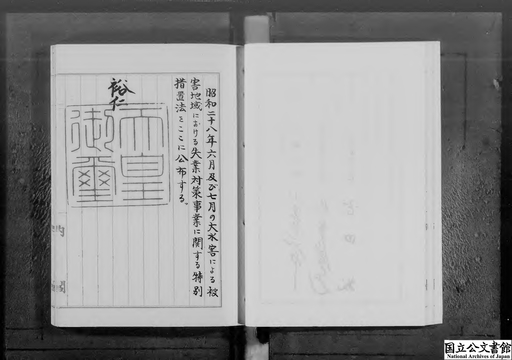 昭和二十八年六月及び七月の大水害による被
害地域における失業対策事業に関する特別
措置法をここに公布する。
裕仁
天皇
御璽
国立公文書館
National Archives of Japan